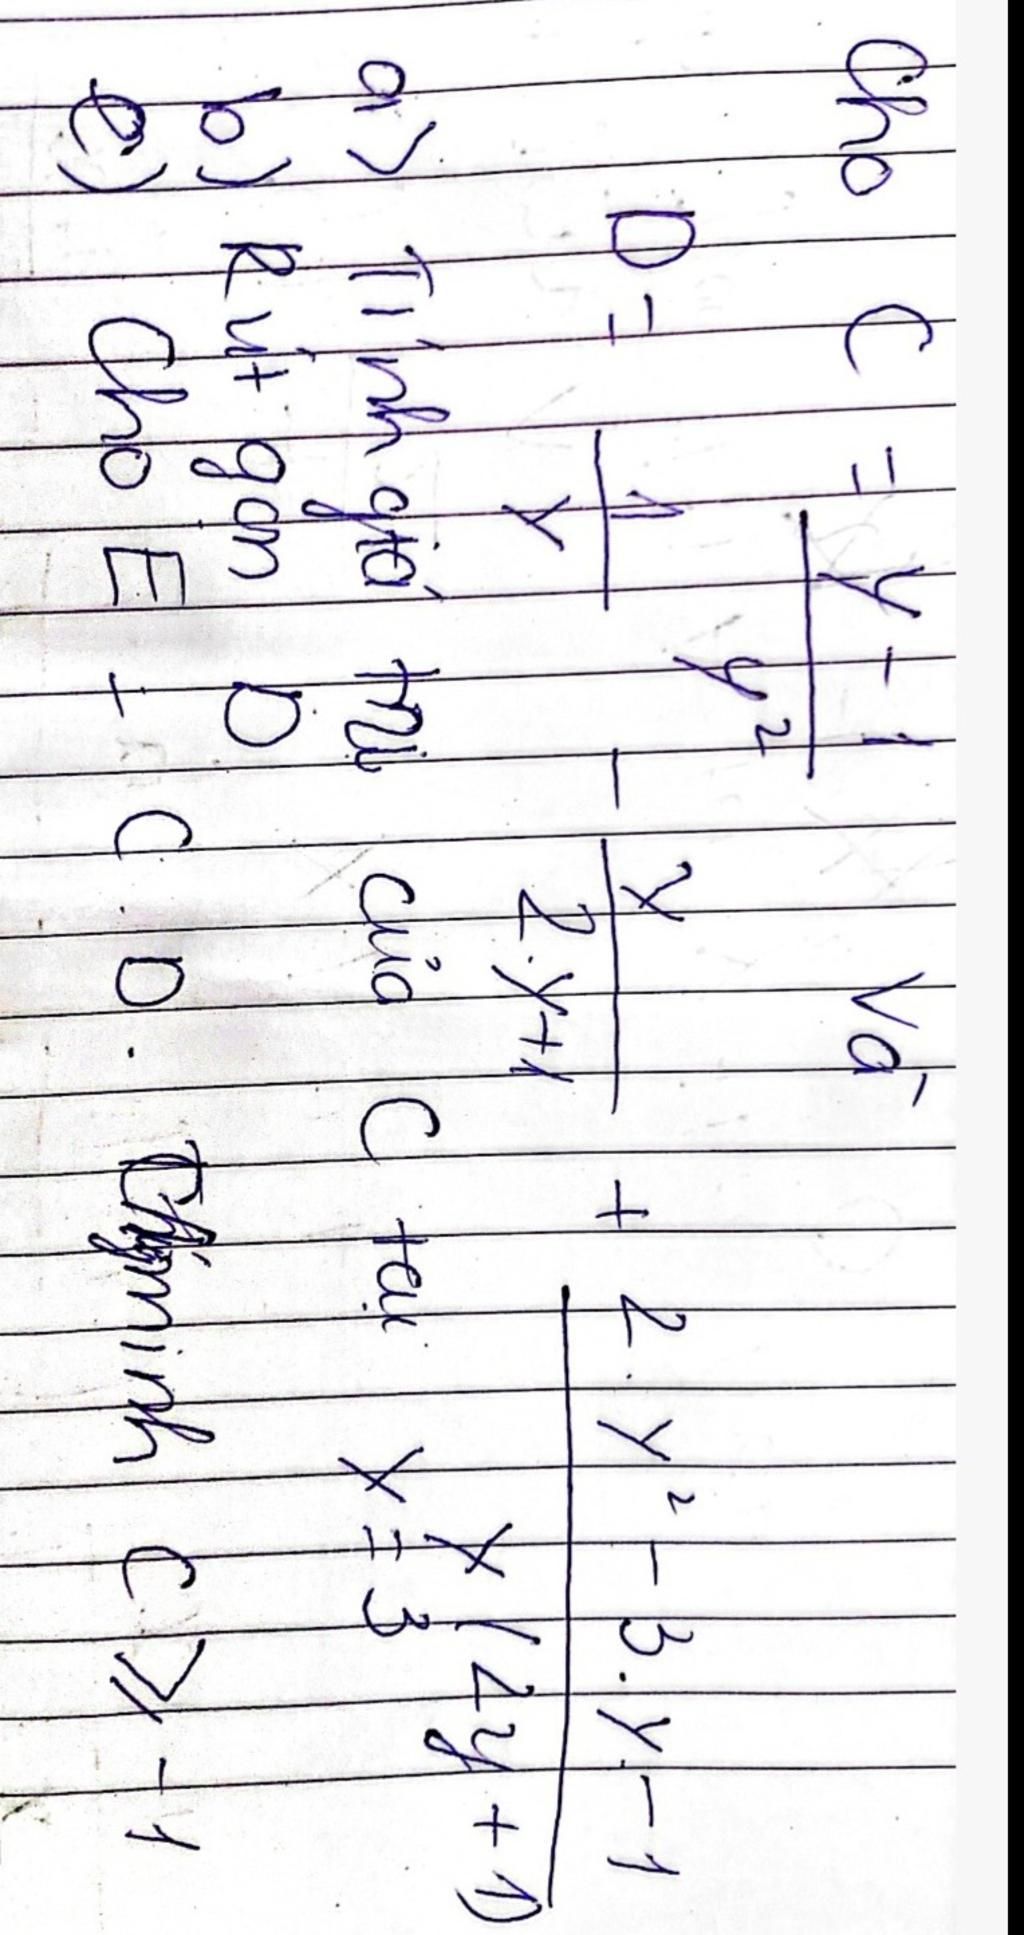 Cho C = y - 1 / y² Và
D = 1 / y - y / 2.y+1 + 2.y² - 3.y - 1 / y(2y + 1)
a) Tính giá trị của C tại x = 3
b) Rút gọn D
c) Cho E = C . D . minh C ⩾ -1